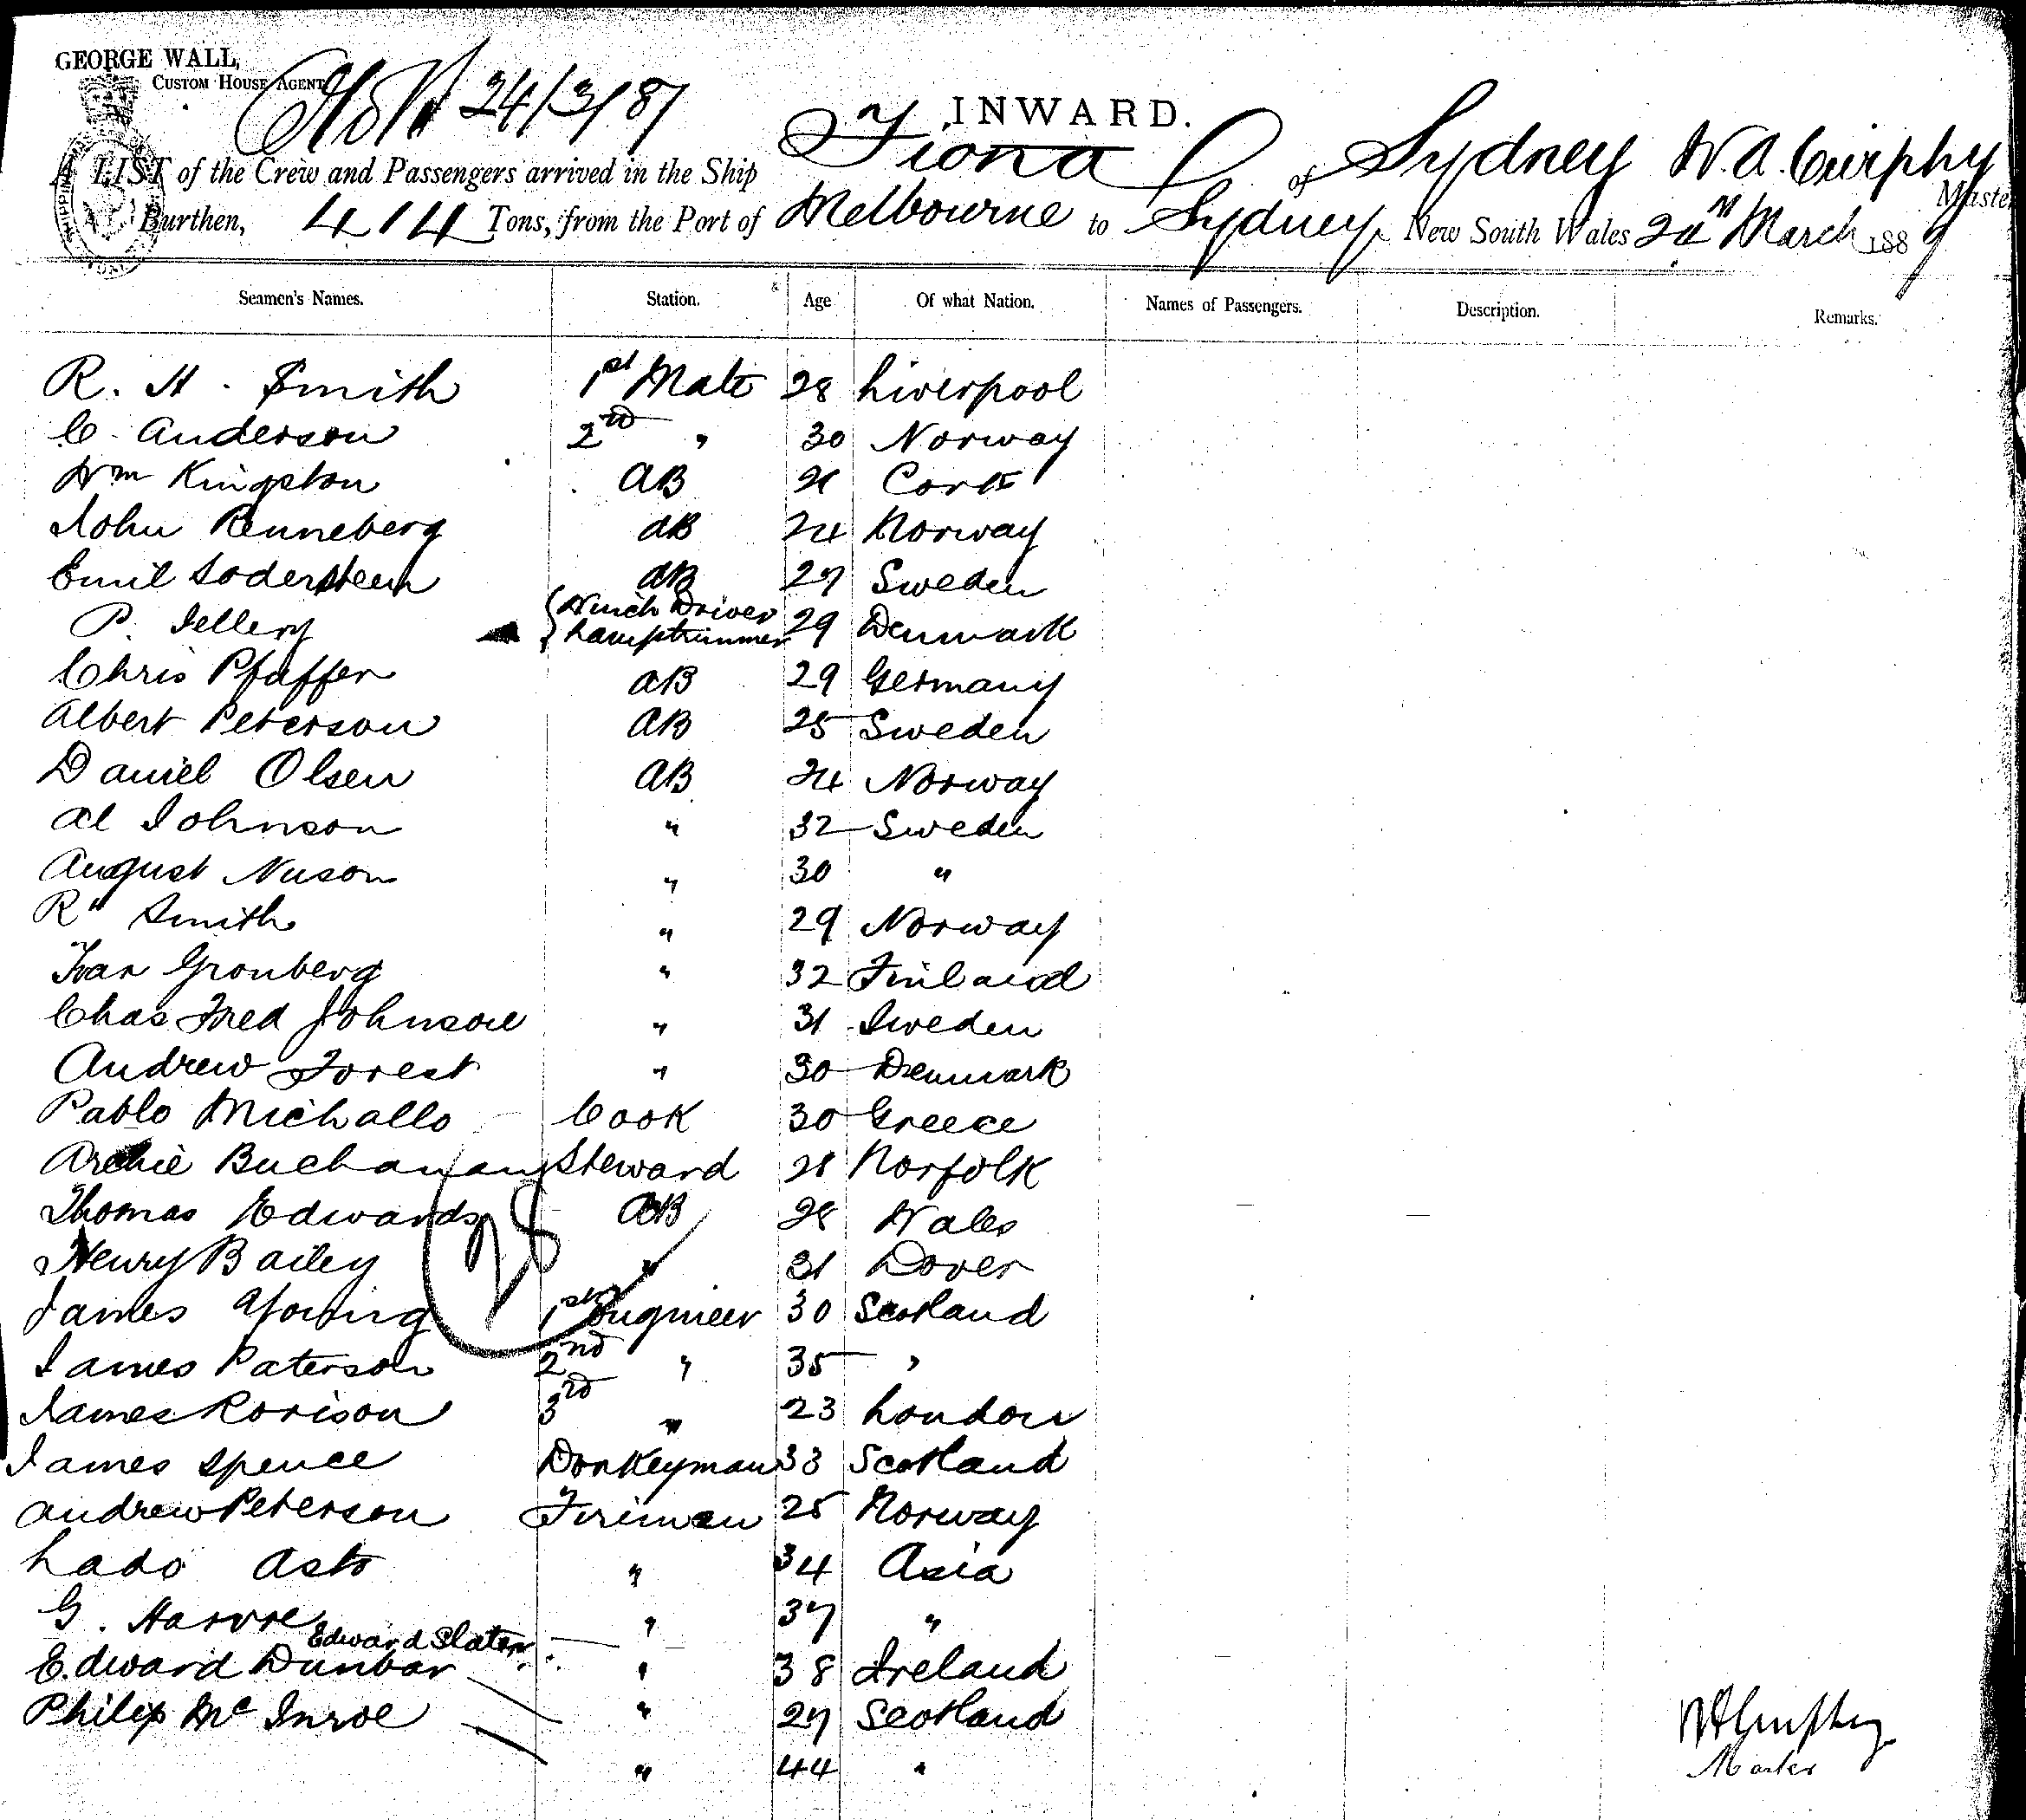 GEORGE WALL,
CUSTOM HOUSE AGENT
24/3/87
INWARD.
A LIST of the Crew and Passengers arrived in the Ship Fiona of Sydney W. A. Curphy Master
Burthen, 414 Tons, from the Port of Melbourne to Sydney New South Wales March 188
Seamen's Names. Station. Age Of what Nation. Names of Passengers. Description. Remarks.
R. H. Smith 1st Mate 28 Liverpool
C. Anderson 2nd " 30 Norway
Wm Kingston AB 21 Cork
John Renneberg AB 24 Norway
Emil Sodersteen AB 27 Sweden
P. Jellery Winch Driver Lamptrimmer 29 Denmark
Chris Pfaffer AB 29 Germany
Albert Peterson AB 25 Sweden
Daniel Olsen AB 24 Norway
Al Johnson " 32 Sweden
August Nuson " 30 "
R" Smith " 29 Norway
Ivar Gronberg " 32 Finland
Chas Fred Johnson " 31 Sweden
Andrew Forest " 30 Denmark
Pablo Michallo Cook 30 Greece
Archie Buchanan Steward 28 Norfolk
Thomas Edwards AB 28 Wales
Henry Bailey " 31 Dover
28
James Young 1st Engineer 30 Scotland
James Paterson 2nd " 35 "
James Rorison 3rd " 23 London
James Spence Donkeyman 33 Scotland
Andrew Peterson Firiman 25 Norway
Lado Asto " 34 Asia
G. Harvre " 37 "
Edward Slater
Edward Dunbar " 38 Ireland
Philip Mc Inroe " 27 Scotland
" 44 "
W A Curphey
Master